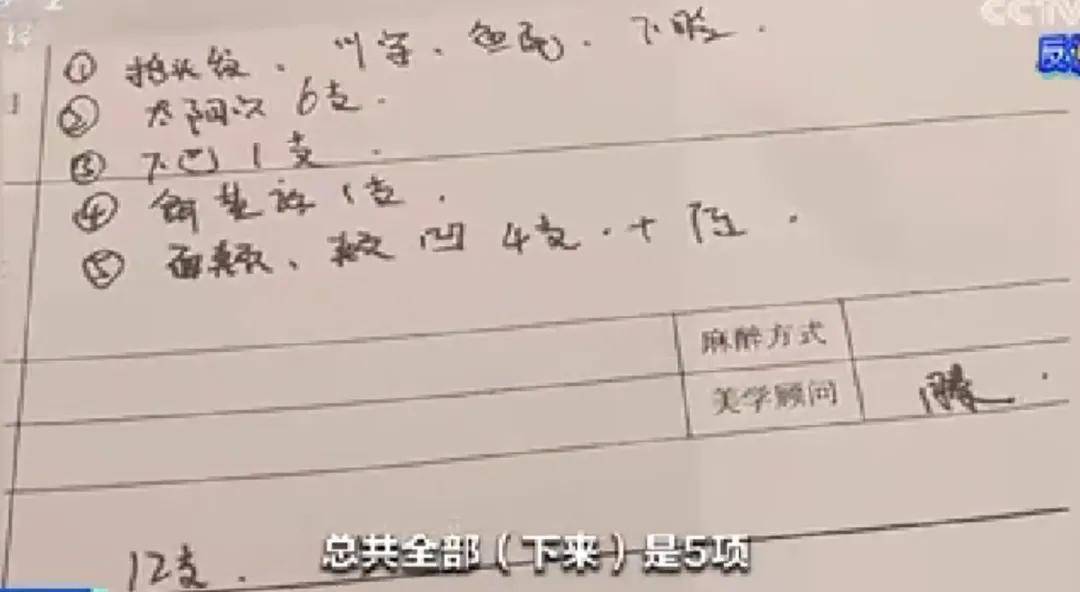 CCTV
① 抬头纹、川字、鱼尾、下睑.
② 太阳穴 6支.
③ 下巴 1支.
④ 鼻基底 1支.
⑤ 面颊、颊凹 4支.+
麻醉方式
美学顾问
12支.
总共全部（下来）是5项